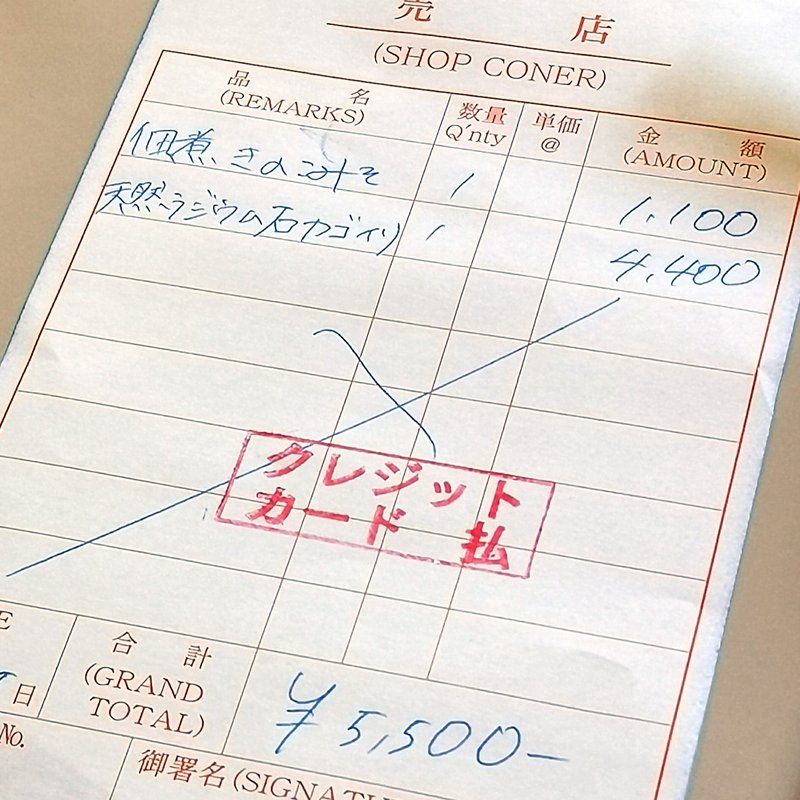 売店
(SHOP CONER)
品名 数量 単価 金額
(REMARKS) Q'nty @ (AMOUNT)
佃煮 きのこみそ 1 1,100
天然ラジウム石カゴイリ 1 4,400
クレジット
カード 払
合計
(GRAND
TOTAL)
¥5,500-
日
No.
御署名(SIGNATU